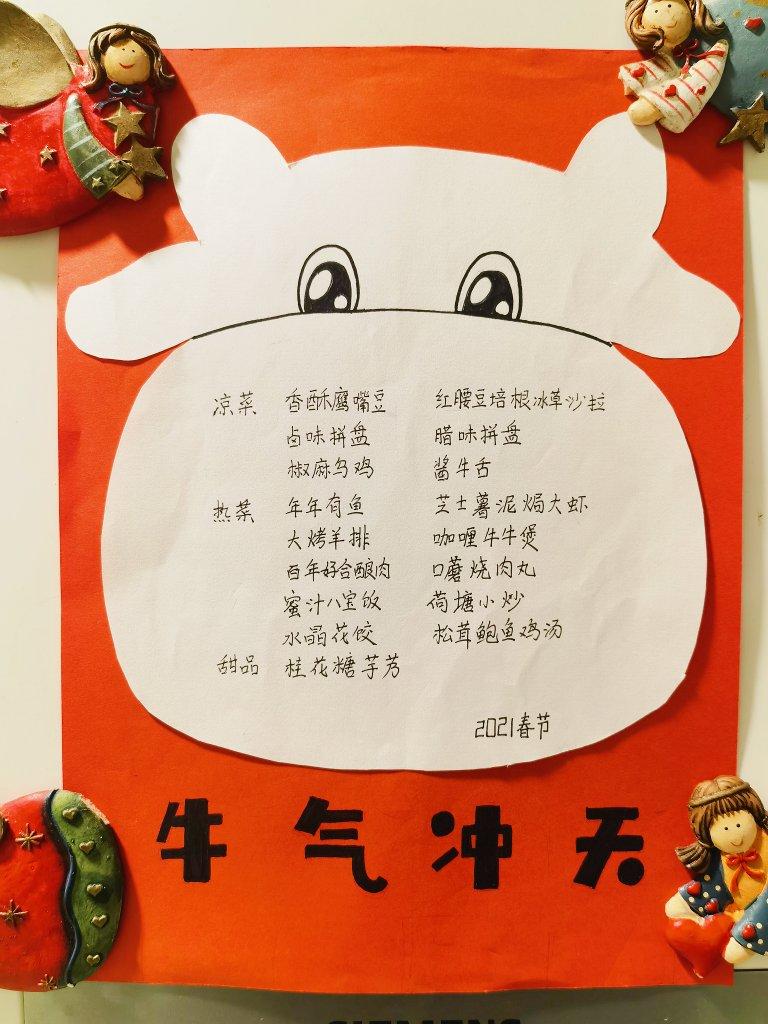 凉菜 香酥鹰嘴豆 红腰豆培根冰草沙拉
卤味拼盘 腊味拼盘
椒麻乌鸡 酱牛舌
热菜 年年有鱼 芝士薯泥焗大虾
大烤羊排 咖喱牛牛煲
百年好合酿肉 口蘑烧肉丸
蜜汁八宝饭 荷塘小炒
水晶花饺 松茸鲍鱼鸡汤
甜品 桂花糖芋艿
2021春节
牛气冲天
SIEMENS